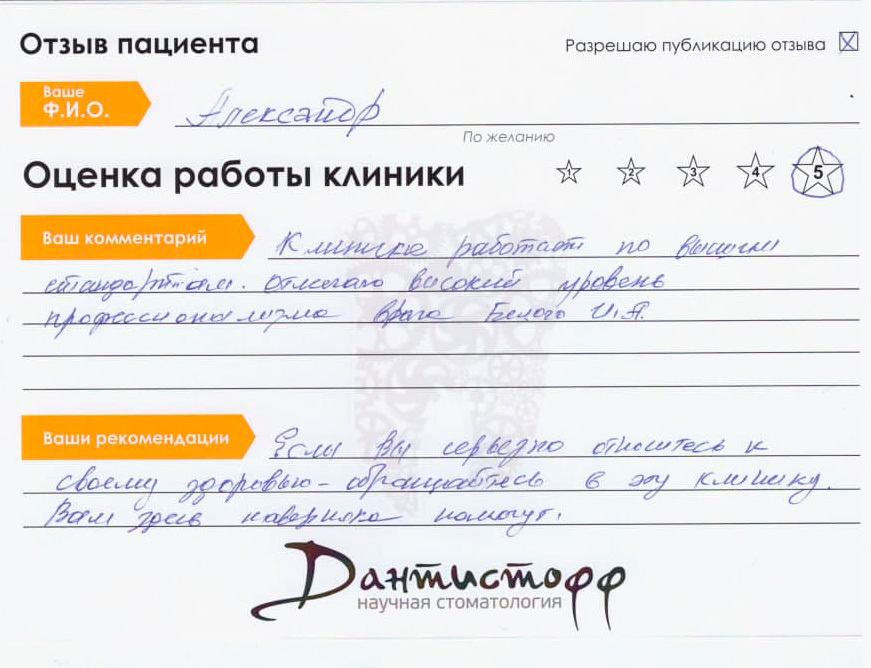 Отзыв пациента
Разрешаю публикацию отзыва
Ваше
Ф.И.О.
Александр
По желанию
Оценка работы клиники 1 2 3 4 5
Ваш комментарий
Клиника работает по высшим
стандартам. Отмечаю высокий уровень
профессионализма врача Белого И.А.
Ваши рекомендации
Если Вы серьезно относитесь к
своему здоровью - обращайтесь в эту клинику.
Вам здесь наверняка помогут.
Дантистофф
научная стоматология